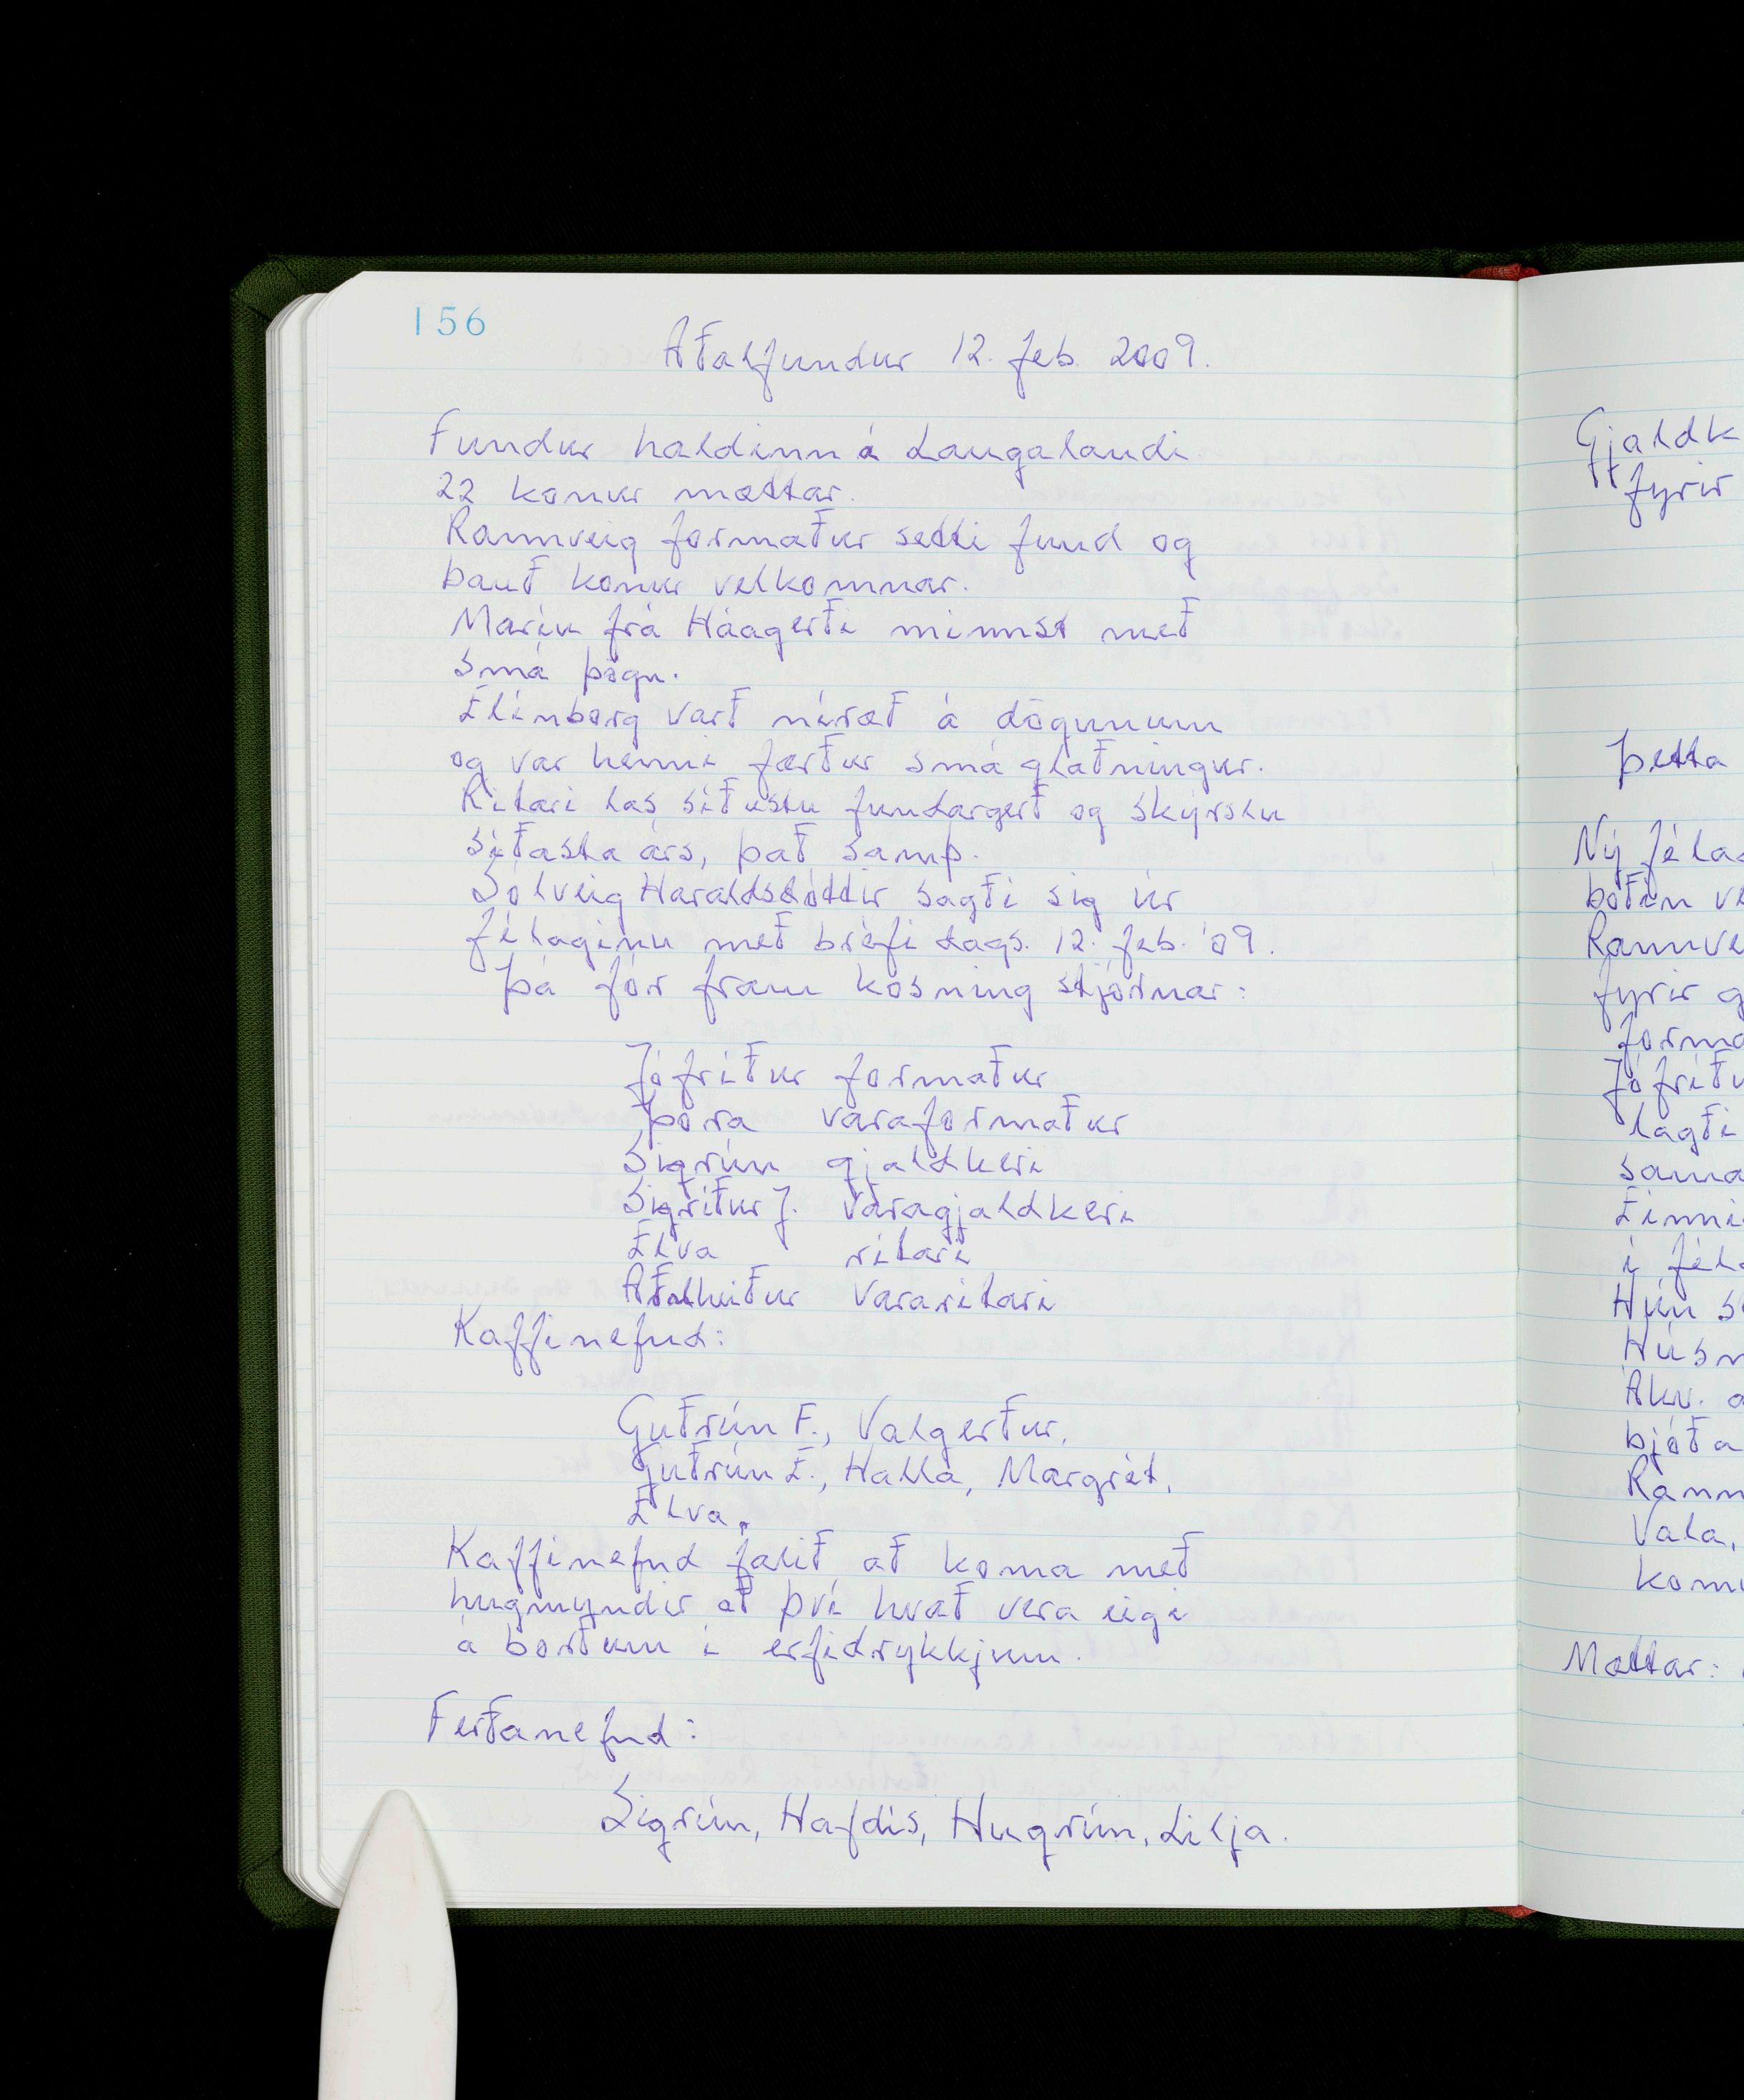 156
Aðalfundur 12. feb. 2009.
Fundur haldinn á Laugalandi.
22 konur mættar.
Rannveig formaður setti fund og
bauð konur velkomnar.
Maríu frá Háagerði minnst með
smá þögn.
Elínborg varð níræð á dögunum
og var henni færður smá glaðningur.
Ritari las síðustu fundargerð og skýrslu
síðasta árs, það samþ.
Sólveig Haraldsdóttir sagði sig úr
félaginu með bréfi dags. 12. feb. '09.
Þá fór fram kosning stjórnar:
Jófríður formaður
Þóra varaformaður
Sigrún gjaldkeri
Sigríður J. varagjaldkeri
Elva ritari
Aðalheiður vararitari
Kaffinefnd:
Guðrún F., Valgerður,
Guðrún E., Halla, Margrét,
Elva.
Kaffinefnd falið að koma með
hugmyndir að því hvað vera eigi
á borðum í erfidrykkjum.
Ferðanefnd:
Sigrún, Hafdís, Hugrún, Lilja.
Gjaldk
fyrir
Þetta
Ný féla
boðin ve
Rannve
fyrir g
forma
Jófríðu
lagði
sama
Einni
í féla
Hún s
Húsm
Ákv. a
bjóða
Rann
Vala,
kom
Mættar: